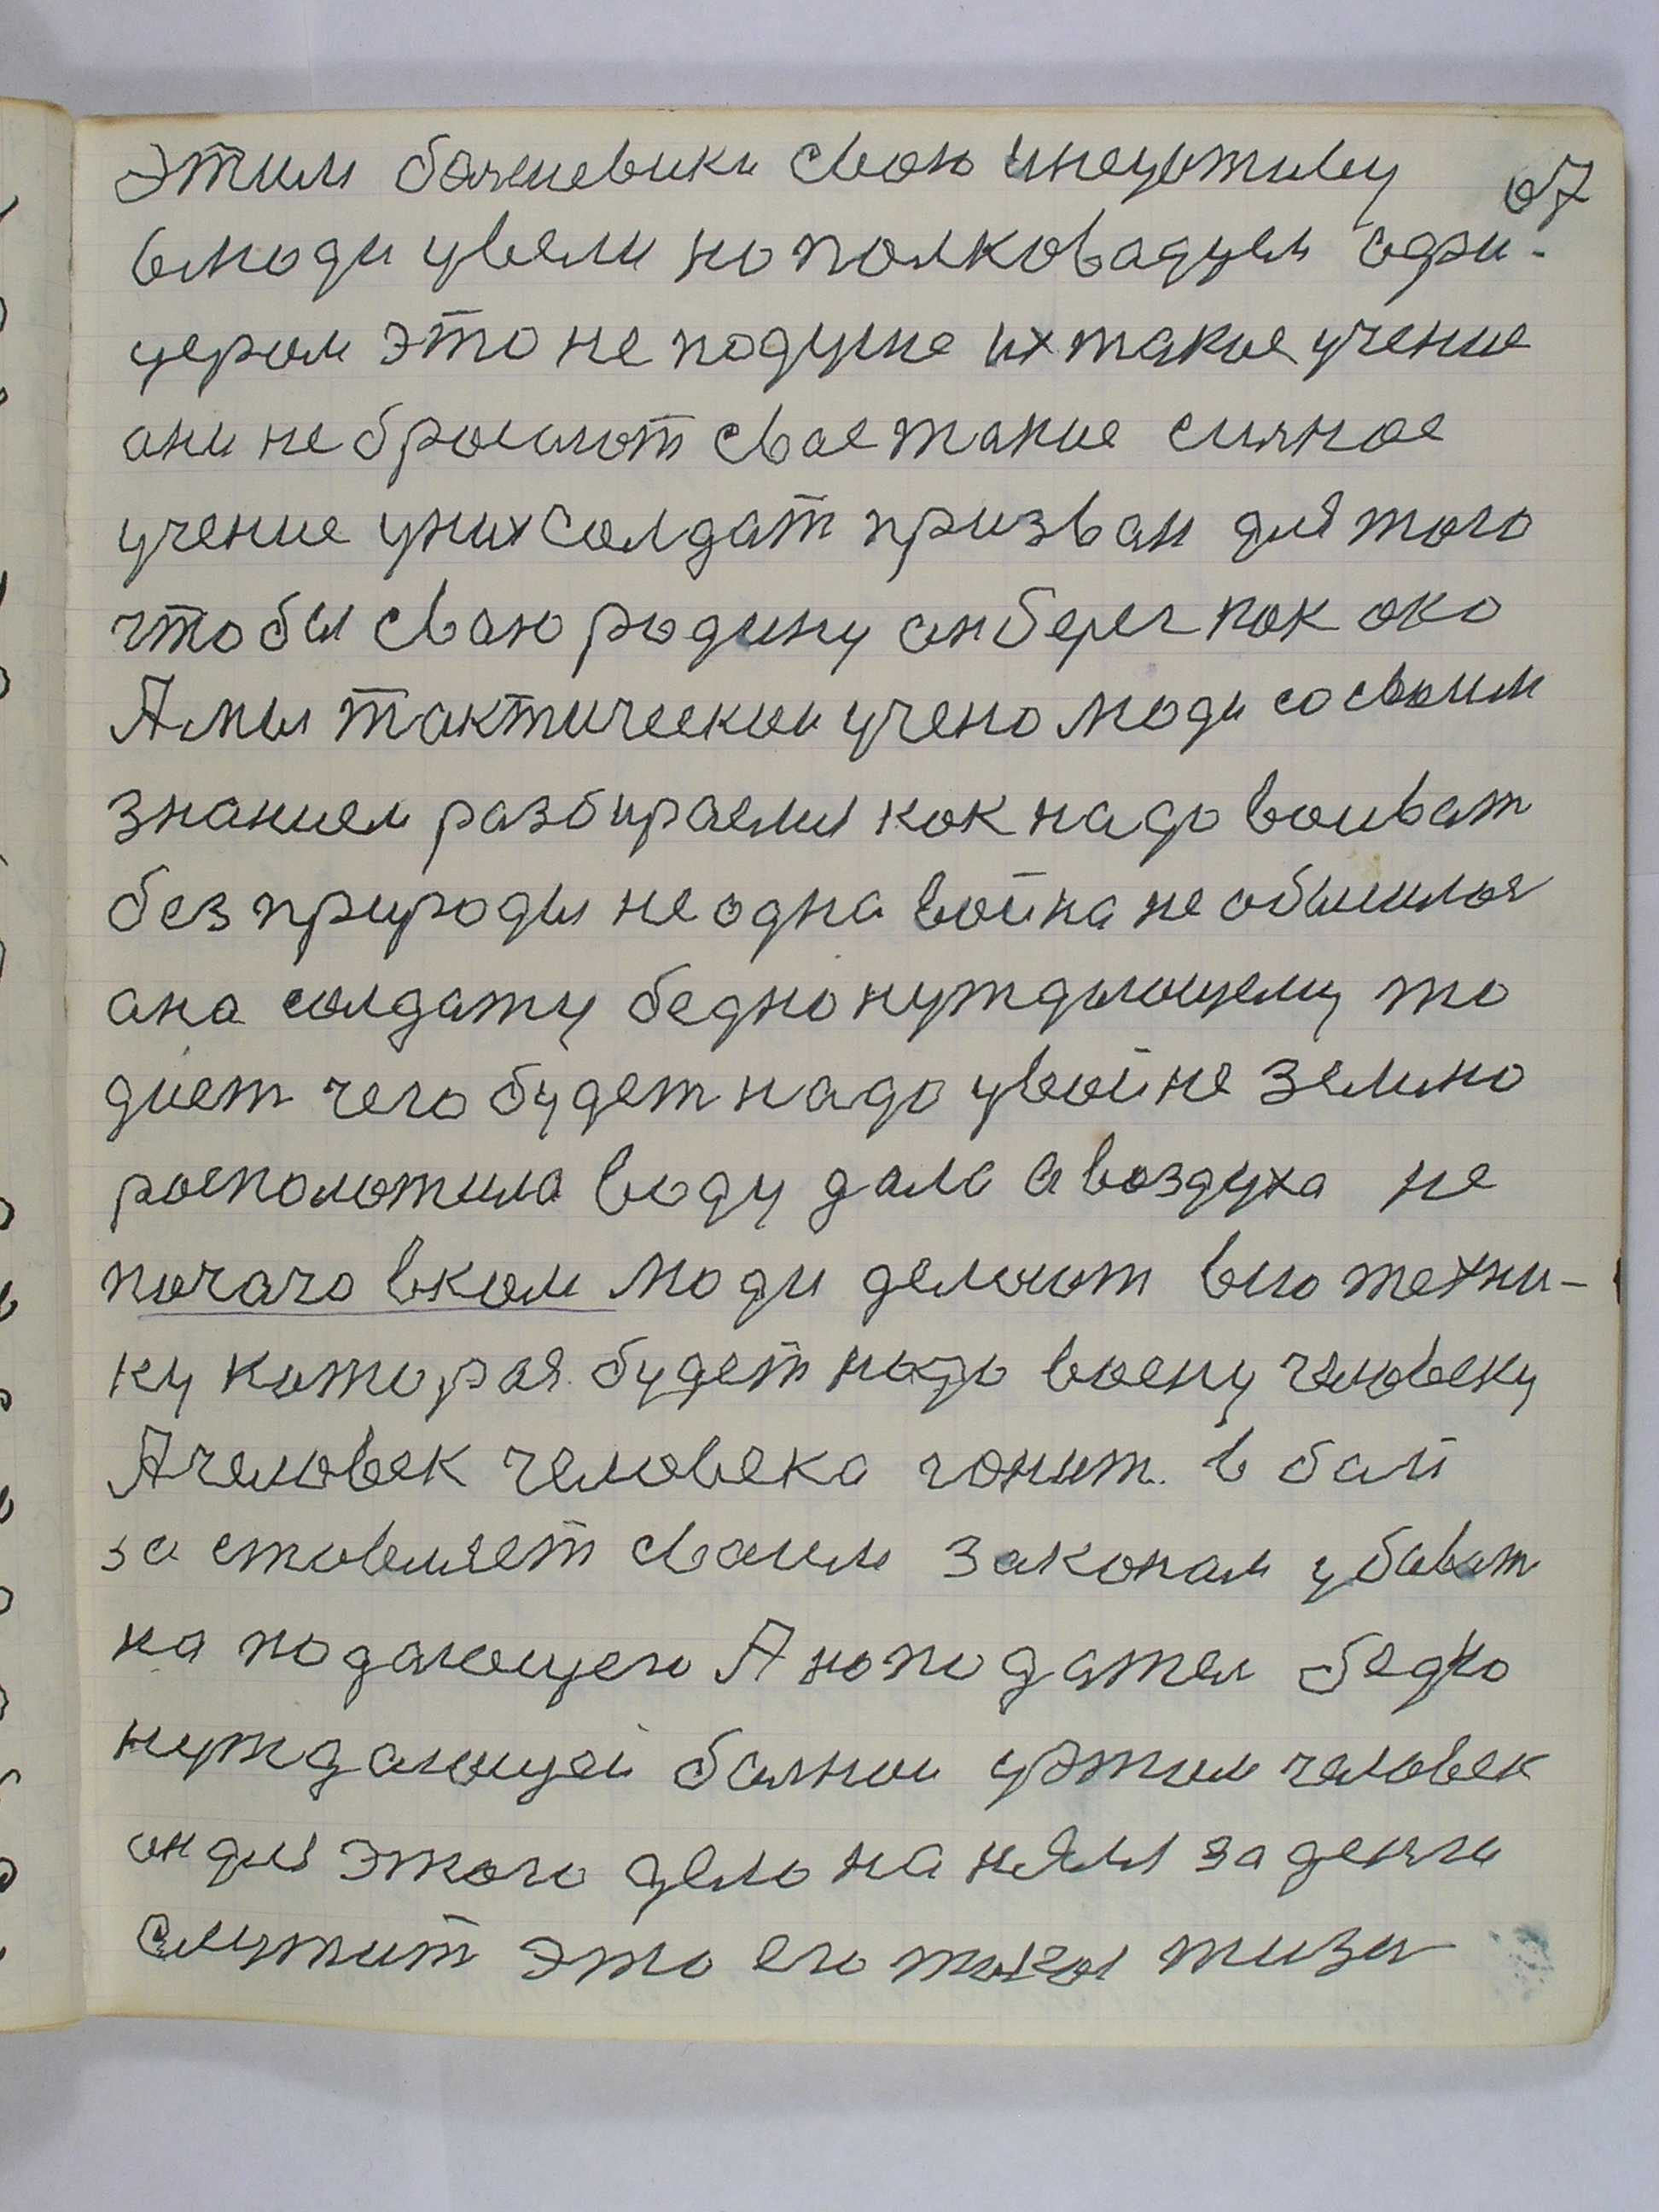 этим бачшевики свою инецетиву 67
влюди увели но полководцем офи-
цером это не подуше их такие учение
они не бросают свое такие сильное
учение уних солдат призван для того
чтобы сваю родину он берег как око
Амы тактическии учено люди со своим
знанием разбираемы как надо воиват
без природы не одна война не обшилоя
ана солдату бедно нуждающему то
дает чего будет надо увойне землю
росположила воду дала а воздуха не
почаго вком люди делоют вию техни-
ку которая будет надо военну человеку
Ачеловек человека гонит в бай
за ставляет сваим законам убиват
на подающего А ноподател бедно
нуждающеи балнои устим человек
он для этого дело на нялы за денги
Служит это его такая жизн